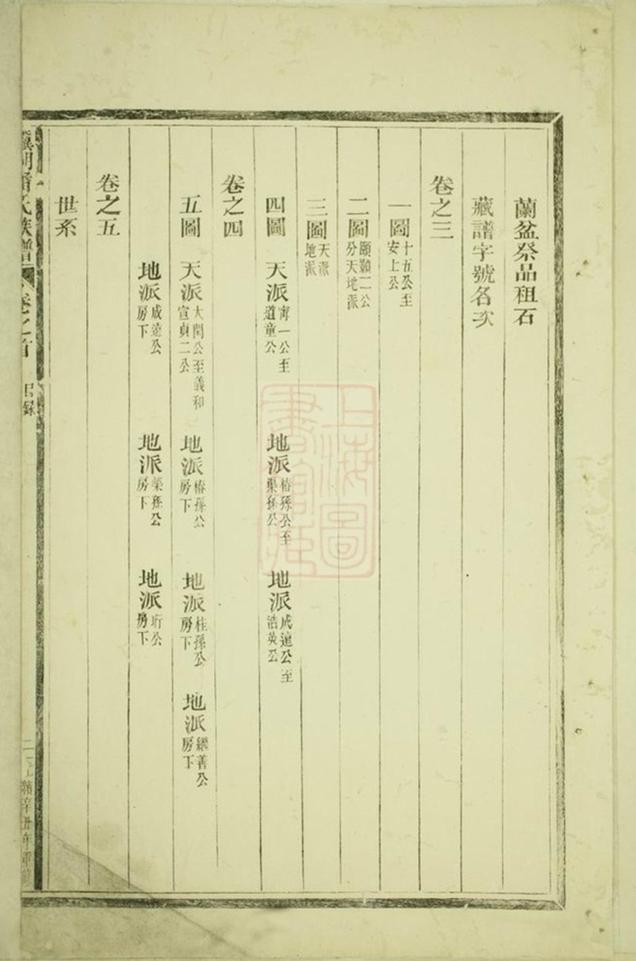 蘭盆祭品租石
藏譜字號名次
卷之三
一圖 十五公至安上公
二圖 頤顥二公分天地派
三圖 天派地派
四圖 天派 甯一公至道童公 地派 椿孫公至榘孫公 地派 成逵公至浩英公
卷之四
五圖 天派 大閏公至義和宣貞二公 地派 椿孫公房下 地派 桂孫公房下 地派 繼善公房下
地派 成逵公房下 地派 榘孫公房下 地派 珩公房下
卷之五
世系
氏族譜 卷之首 目錄